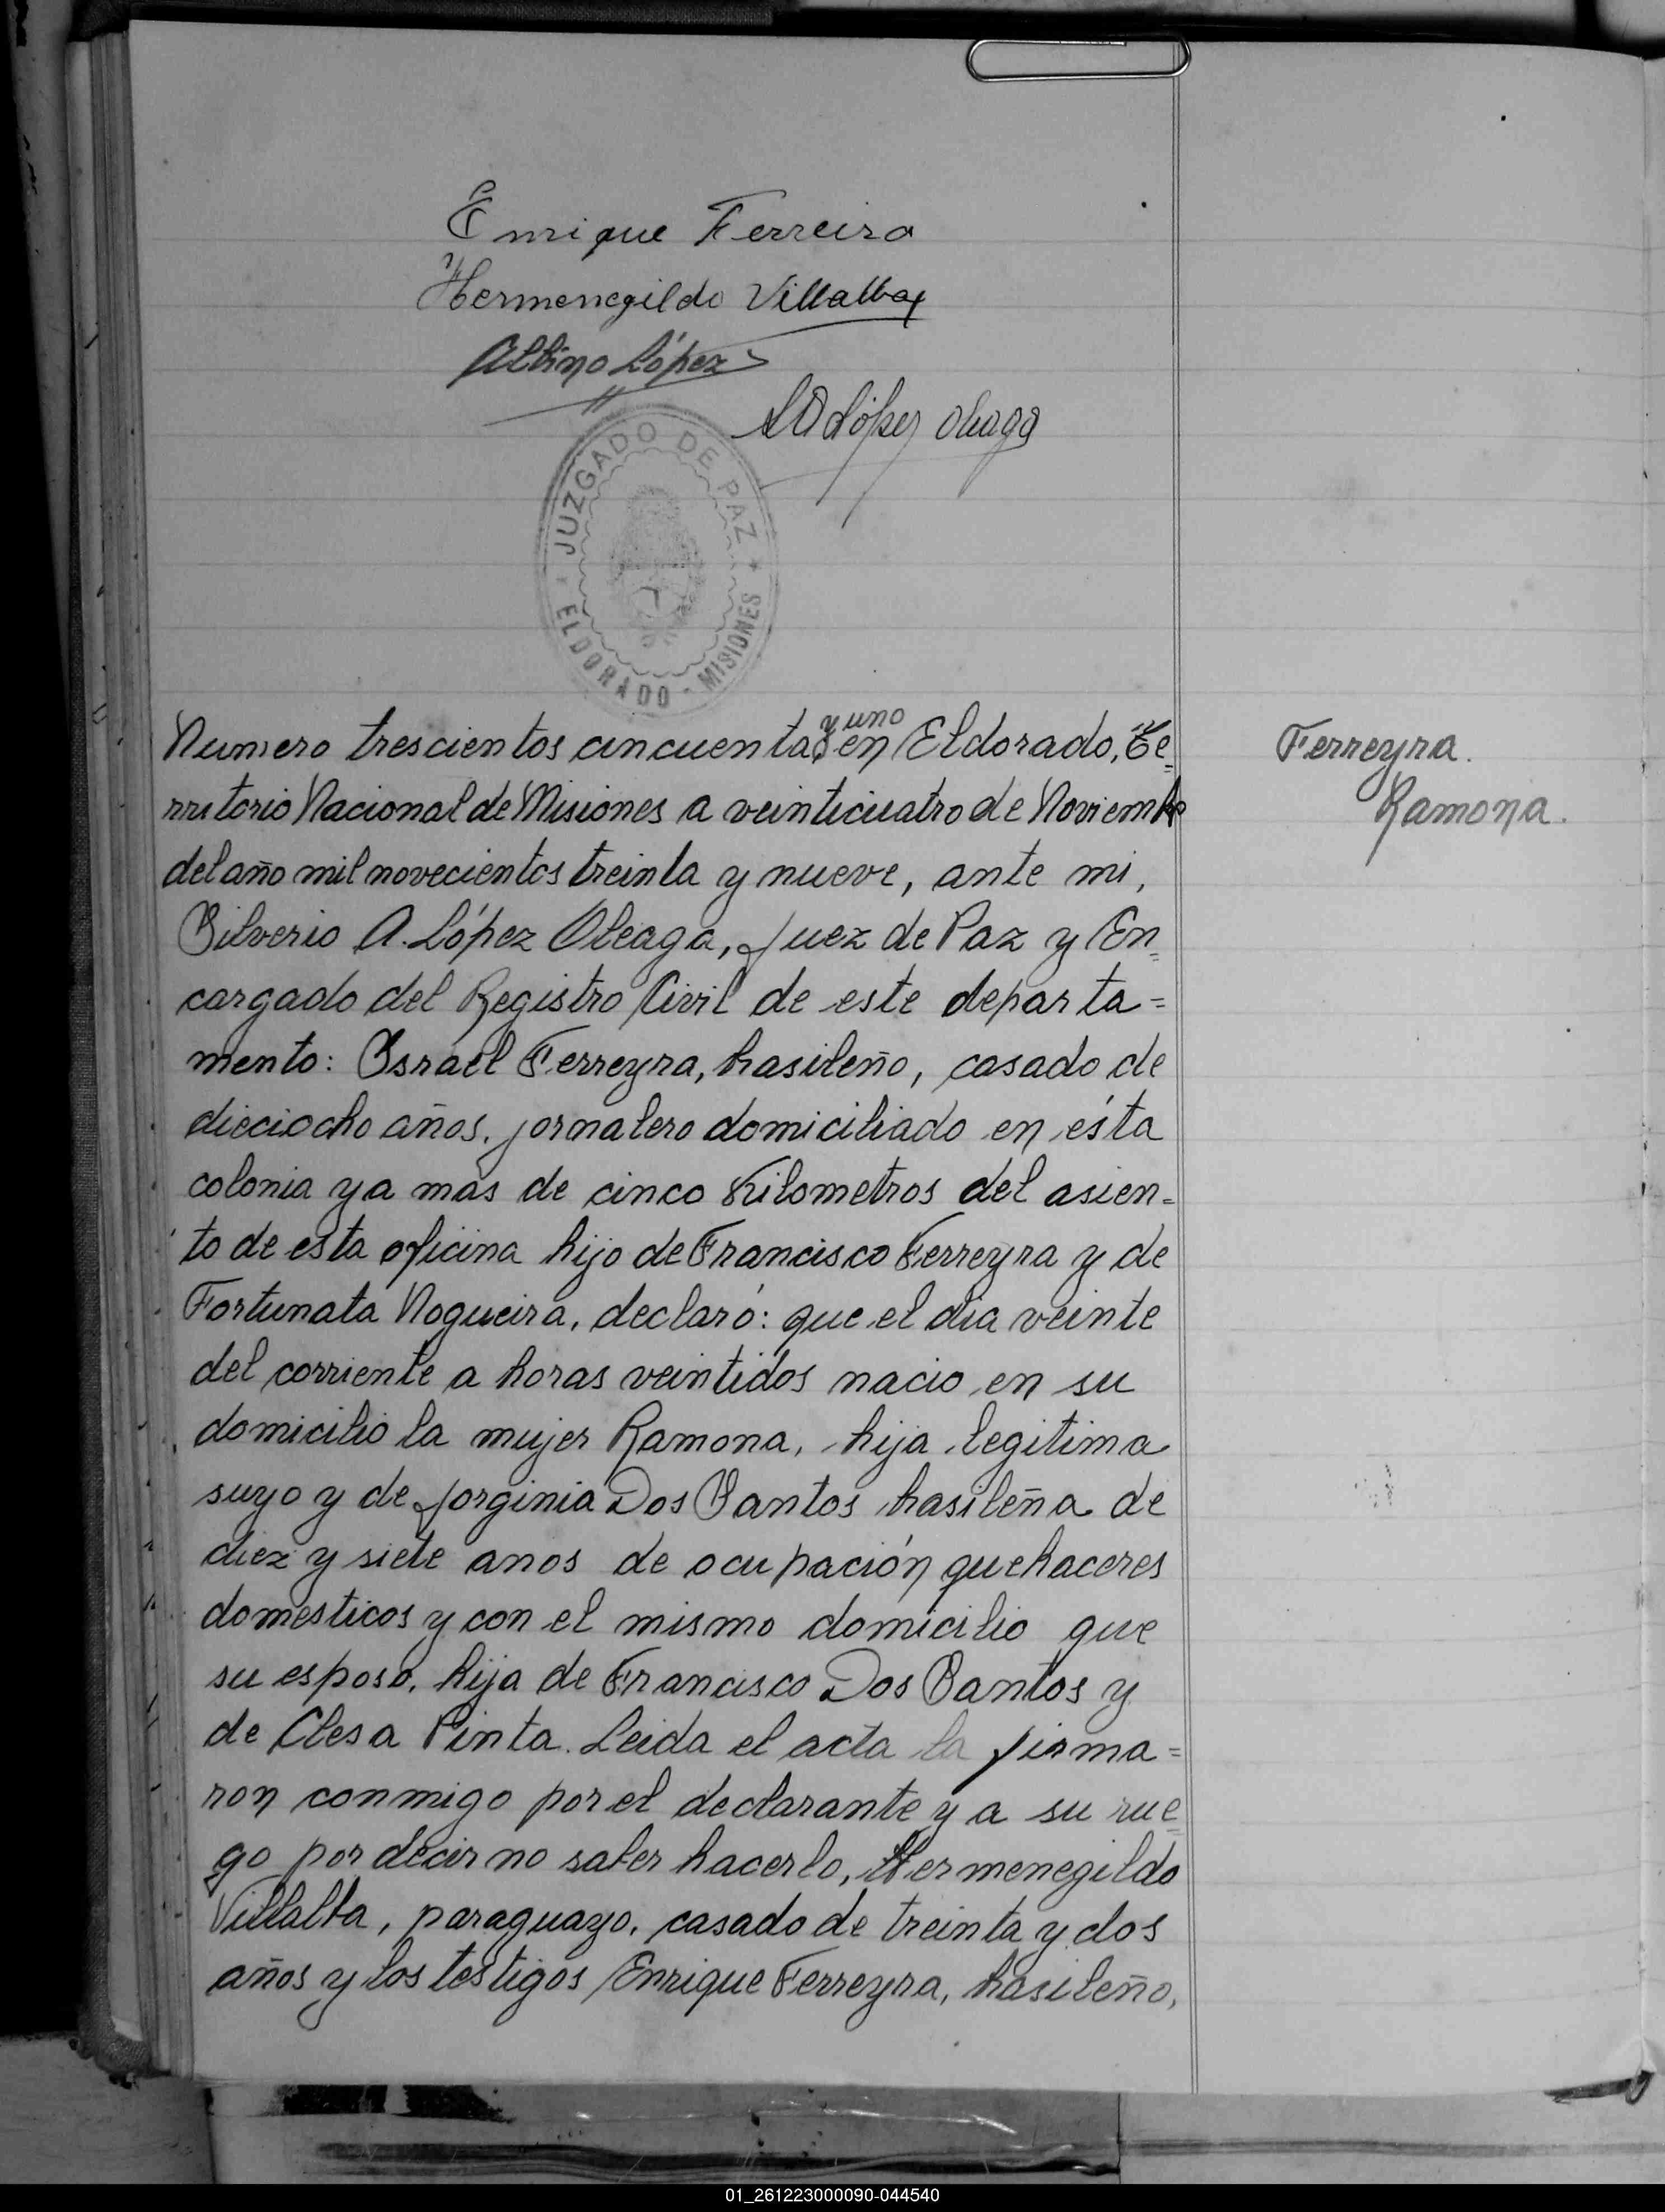 Enrique Ferreira
Hermenegildo Villalba
Albino López
SA López Oleaga
JUZGADO DE PAZ
ELDORADO - MISIONES
Numero trescientos cincuenta y uno en Eldorado, Te=
rritorio Nacional de Misiones a veinticuatro de Noviembre
del año mil novecientos treinta y nueve, ante mi,
Silverio A. López Oleaga, Juez de Paz y En=
cargado del Registro Civil de este departa=
mento: Israel Ferreyra, brasileño, casado de
dieciocho años, jornalero domiciliado en ésta
colonia y a mas de cinco Kilometros del asien=
to de esta oficina hijo de Francisco Ferreyra y de
Fortunata Nogueira, declaró: que el dia veinte
del corriente a horas veintidos nacio en su
domicilio la mujer Ramona, hija legitima
suyo y de Jorginia Dos Santos brasileña de
diez y siete anos de ocupación quehaceres
domesticos y con el mismo domicilio que
su esposo, hija de Francisco Dos Santos y
de Clesa Pinta. Leida el acta la firma=
ron conmigo por el declarante y a su rue=
go por decir no saber hacerlo, Hermenegildo
Villalba, paraguayo, casado de treinta y dos
años y los testigos Enrique Ferreyra, brasileño,
Ferreyra.
Ramona.
01_261223000090-044540